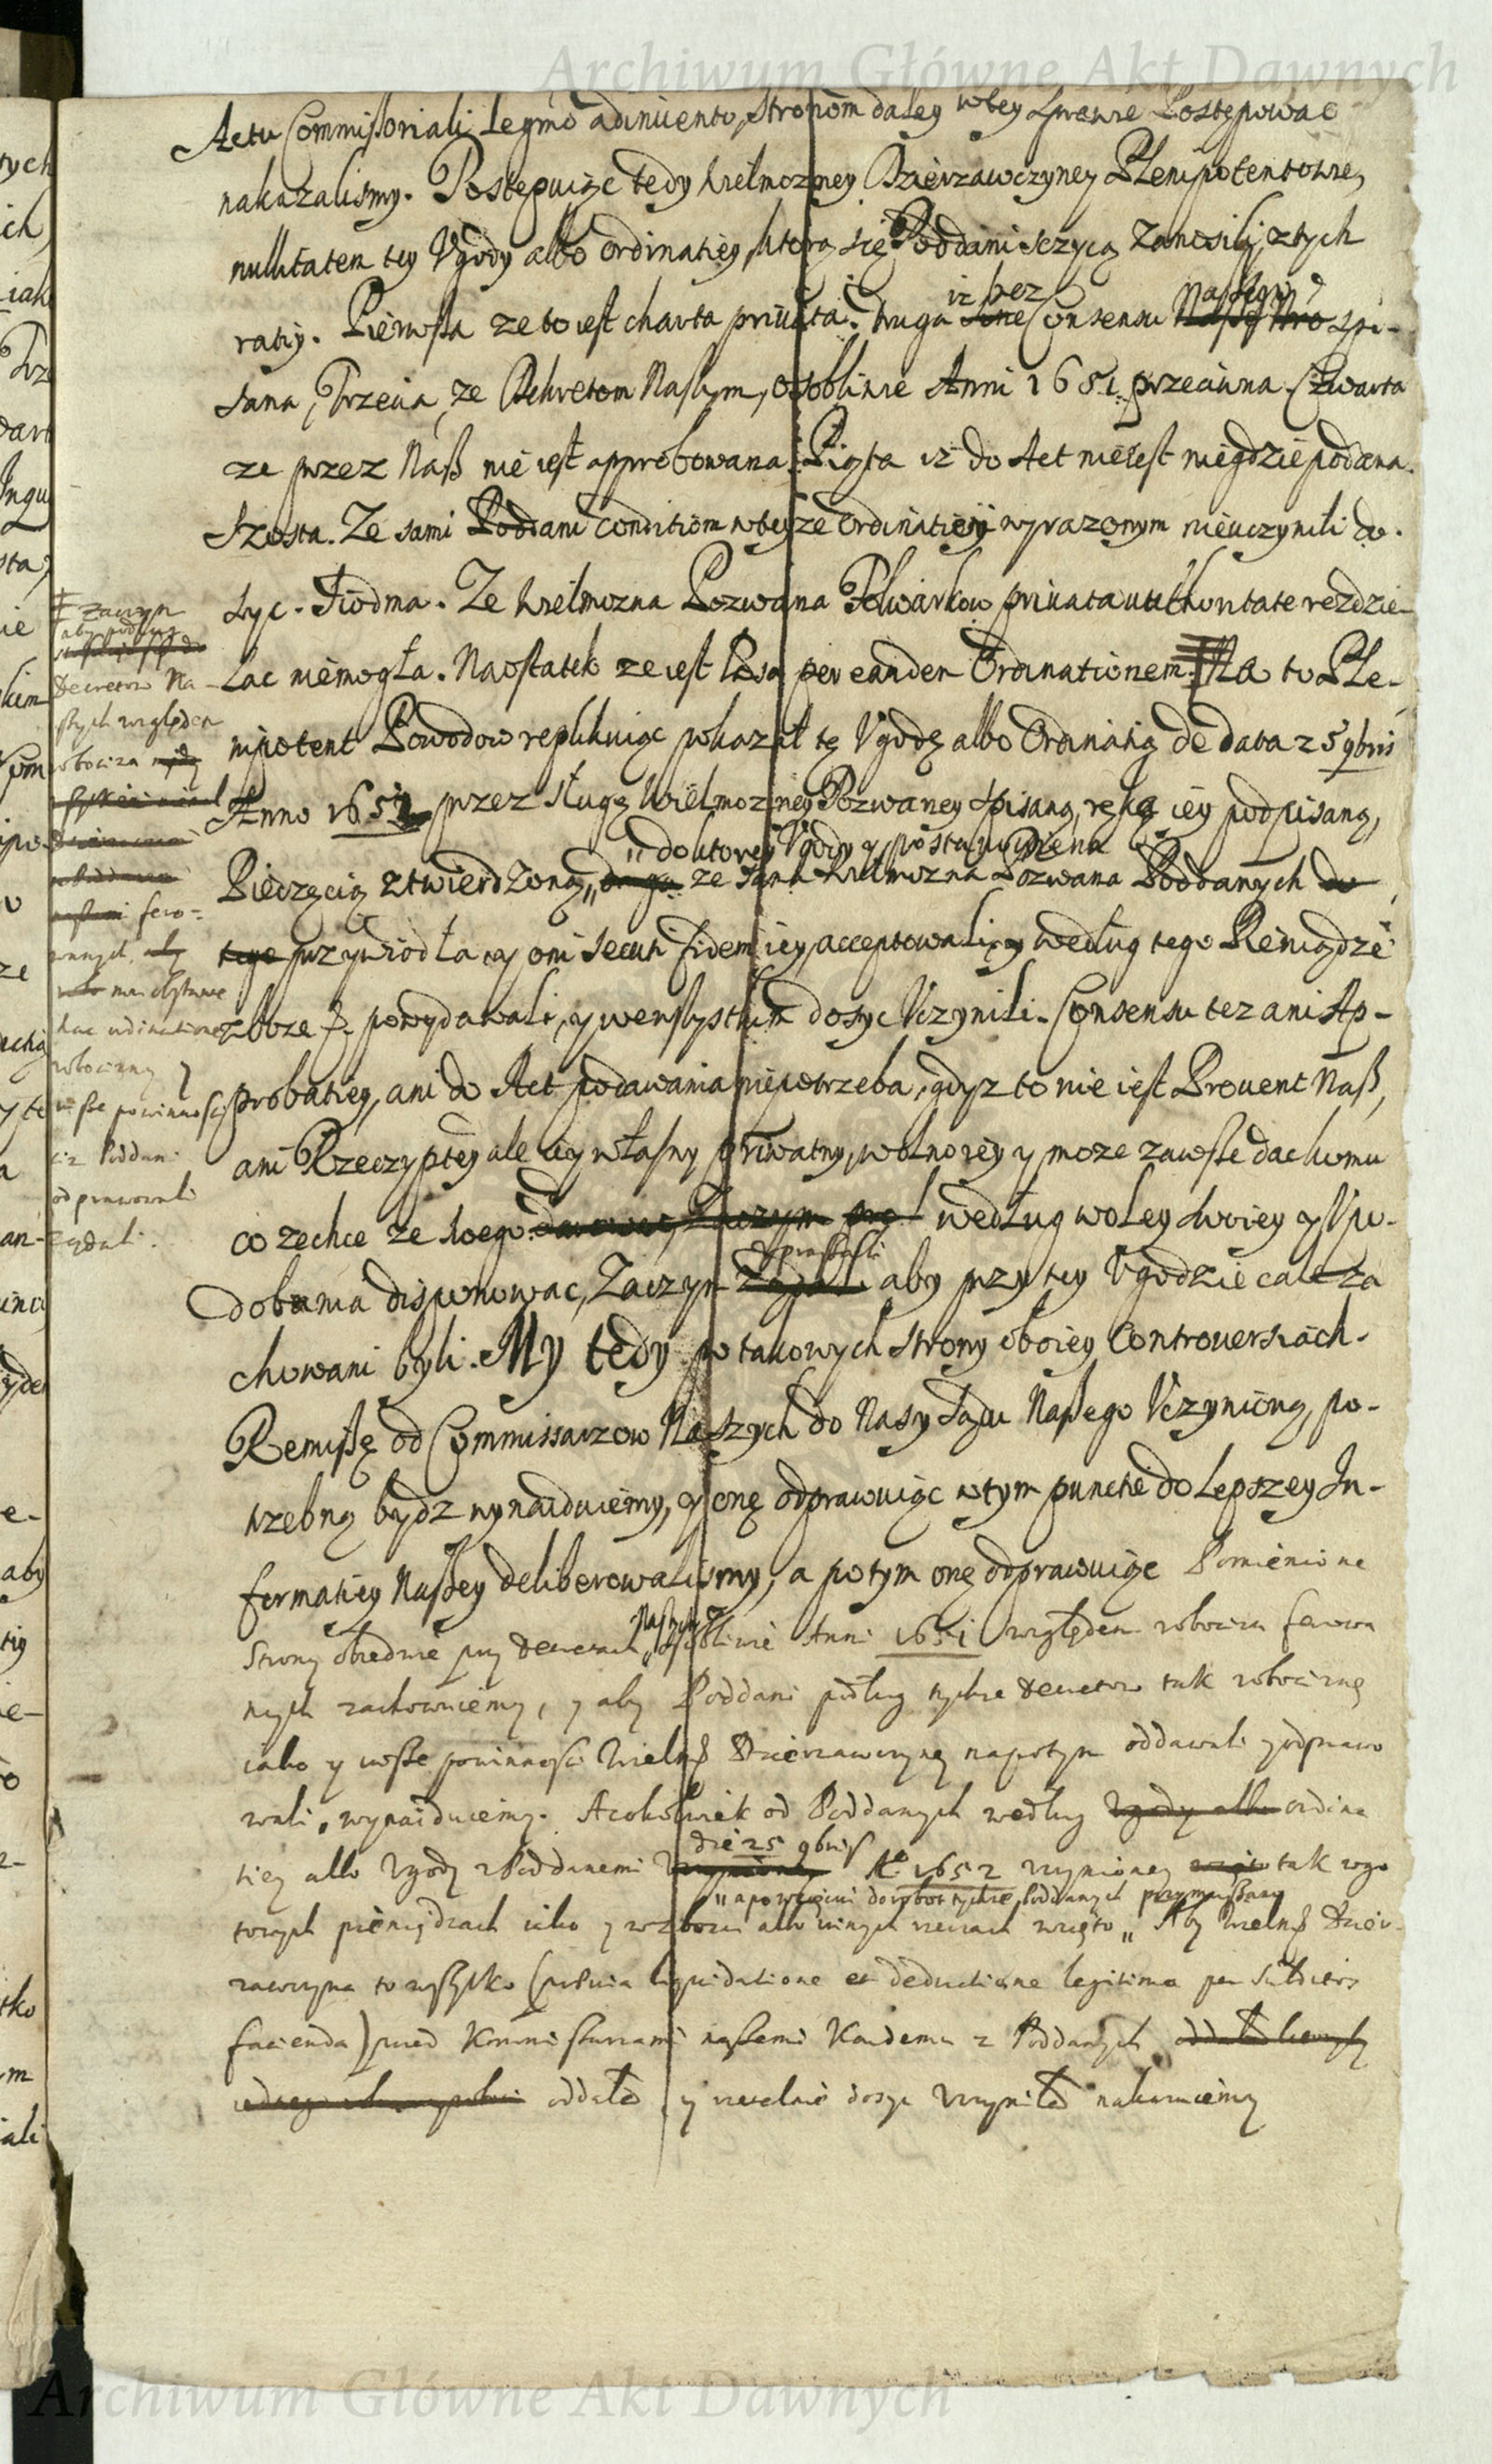 Archiwum Główne Akt Dawnych
Actu Commissoriali legmo adinuento, Stronom daley wtey sprawie Postępować
nakazalismy. Postępuiąc tedy Wielmozney Dzierzawczyney Plenipotentowie,
nullitatem tey Vgody albo ordinatiey, ktorą się Poddani sczycą zanosili, ztych
ratiy. Pierwsza ze to iest charta priuata. Druga iz bez Consensu Naszego spi-
sana, Trzecia ze Dekretom Naszym, osobliwie Anni 1651 przeciwna. Czwarta
ze przez Nasz nie iest approbowana. Piąta iz do Act nieiest niegdzie podana.
Szosta. Ze sami Poddani conditiom wteyze ordinatiey wyrazonym nieuczynili do-
syc. Siodma. Ze Wielmozna Pozwana Folwarkow priuata authoritate rozdzie-
lac niemogła. Naostatek ze iest laesa per eandem Ordinationem. Na to Ple-
nipotent Powodow replikuiąc pokazał tę Vgodę albo Ordinatią de data 25 9bris
Anno 1652 przez sługę Wielmozney Pozwaney spisaną, ręką iey podpisaną,
Pieczęcią ztwierdzoną, do ktorey Vgody y postanowienia
ze sama Wielmozna Pozwana Poddanych do
tego przywiodła, y oni secuti fidem iey, acceptowali, y według tego Pieniądze
zboze powydawali, y wewszystkim dosyc Vczynili. Consensu tez ani Ap-
probatiey, ani do Act podawania niepotrzeba, gdyz to nie iest Prouent Nasz,
ani Rzeczyptey ale iey własny priwatny, wolno iey y moze zawsze dac komu
co zechce ze swego według woley swoiey y Vpo-
dobania disponowac, Zaczym prosili aby przy tey Vgodzie cale za
chowani byli. My tedy po takowych strony oboiey Controuersiach
Remissę od Commissarzow Naszych do Nas y Sądu Naszego Vczynioną, po-
trzebną bydz wynaiduiemy, y onę odprawuiąc wtym puncie do lepszey In-
formatiey Naszey deliberowalismy, a potym onę odprawuiąc Pomienione
Strony obiedwie przy Decretach Naszych osobliwie Anni 1651 względem robocizn ferowa
nych zachowuiemy, y aby Poddani podług tychze Decretow tak robociznę
iako y insze powinnosci Wielmz Dzierzawczyney napotym oddawali y odprawo
wali, wynaiduiemy. A cokolwiek od Poddanych według ordina
tiey albo Vgody z Poddanemi die 25 9bris Ao 1652 vczynioney tak wgo
towych pieniądzach iako y wzbozu albo innych rzeczach wzięto
Aby Wielmz Dzier-
zawczyna to wszystko (praevia liquidatione et deductione legitima per subditos
facienda) przed Kommissarzami naszemi Kazdemu z Poddanych
oddała y rzetelnie dosyc vczyniła nakazuiemy
zaczym
aby podług
Decretow Na-
szych względem
robocizn
fero-
wanych
non obstante
hac ordinatione
robocizny y
insze powinnosci
ciz Poddani
odprawowali
ządali.
Archiwum Główne Akt Dawnych